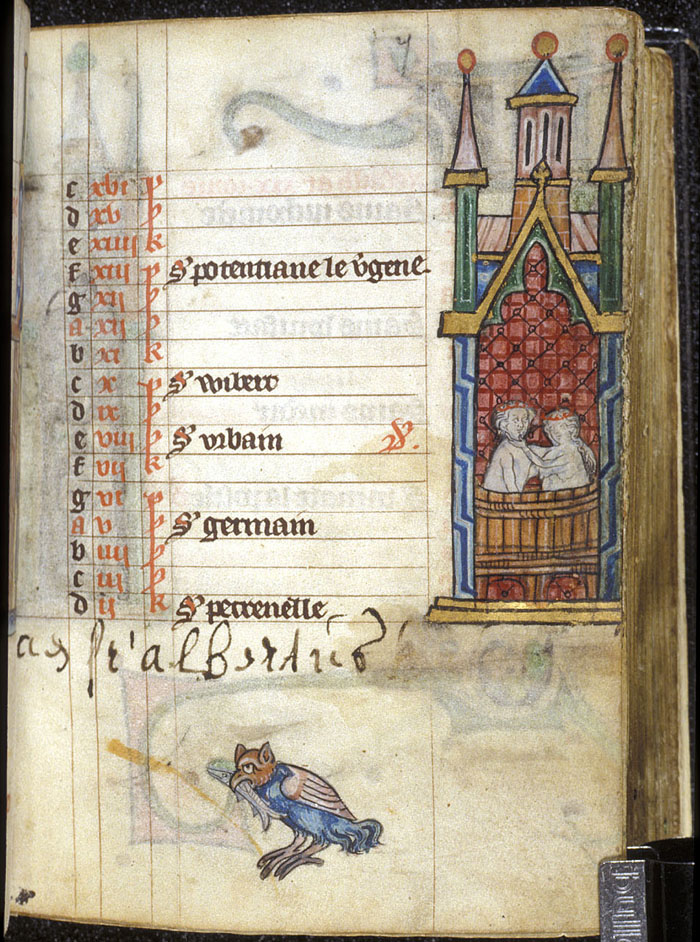 c xvi p
d xv p
e xiiii k
f xiii p S' potentiane le v'gene
g xii p
a xii p
b xi k
c x p S' wibert
d ix p
e viii p S' urbain
f vii k
g vi p
a v p S' germain
b iiii p
c iii p
d ii k S' petrenelle
fr' albertus